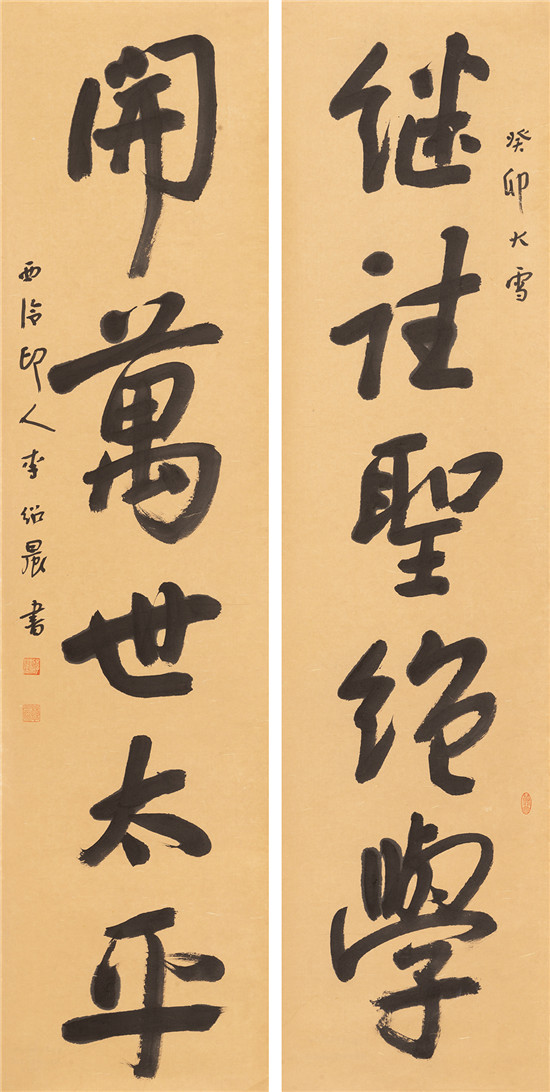 癸卯大雪
继往聖绝學
開萬世太平
西泠印人李绍晨書